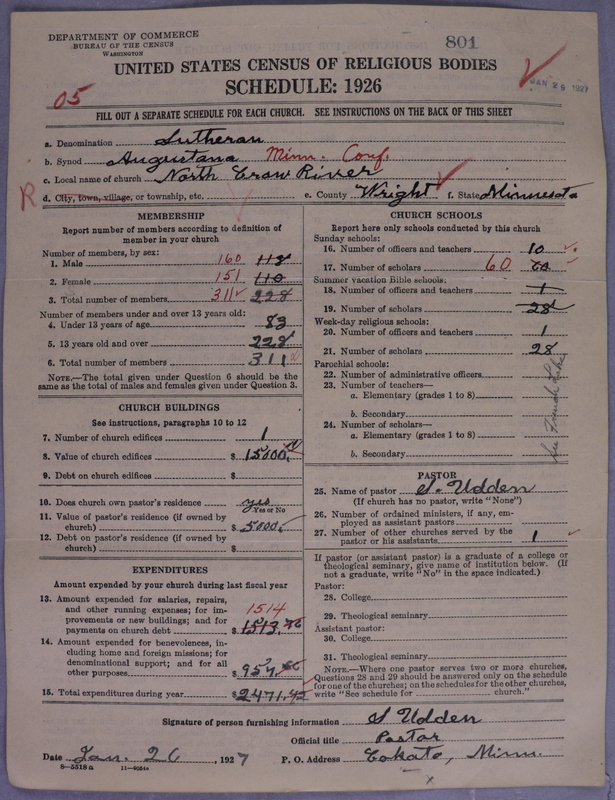 DEPARTMENT OF COMMERCE
BUREAU OF THE CENSUS
WASHINGTON
801
UNITED STATES CENSUS OF RELIGIOUS BODIES
SCHEDULE: 1926
JAN 28 1927
05
FILL OUT A SEPARATE SCHEDULE FOR EACH CHURCH. SEE INSTRUCTIONS ON THE BACK OF THIS SHEET
a. Denomination Lutheran
b. Synod Augustana Minn. Conf.
c. Local name of church North Crow River
R d. City, town, village, or township, etc. e. County Wright f. State Minnesota
MEMBERSHIP
Report number of members according to definition of
member in your church
Number of members, by sex:
1. Male 160 118
2. Female 151 110
3. Total number of members 311 228
Number of members under and over 13 years old:
4. Under 13 years of age 83
5. 13 years old and over 228
6. Total number of members 311
NOTE.—The total given under Question 6 should be the
same as the total of males and females given under Question 3.
CHURCH BUILDINGS
See instructions, paragraphs 10 to 12
7. Number of church edifices 1
8. Value of church edifices $ 15000.
9. Debt on church edifices $
10. Does church own pastor's residence yes
Yes or No
11. Value of pastor's residence (if owned by
church) $ 5000.
12. Debt on pastor's residence (if owned by
church) $
EXPENDITURES
Amount expended by your church during last fiscal year
13. Amount expended for salaries, repairs,
and other running expenses; for im-
provements or new buildings; and for
payments on church debt 1514 $ 1513.76
14. Amount expended for benevolences, in-
cluding home and foreign missions; for
denominational support; and for all
other purposes $ 957.66
15. Total expenditures during year $ 2471.42
CHURCH SCHOOLS
Report here only schools conducted by this church
Sunday schools:
16. Number of officers and teachers 10
17. Number of scholars 60 60
Summer vacation Bible schools:
18. Number of officers and teachers 1
19. Number of scholars 28
Week-day religious schools:
20. Number of officers and teachers 1
21. Number of scholars 28
Parochial schools:
22. Number of administrative officers
23. Number of teachers—
a. Elementary (grades 1 to 8)
b. Secondary
24. Number of scholars—
a. Elementary (grades 1 to 8)
b. Secondary
PASTOR
25. Name of pastor S. Udden
(If church has no pastor, write "None")
26. Number of ordained ministers, if any, em-
ployed as assistant pastors
27. Number of other churches served by the
pastor or his assistants 1
If pastor (or assistant pastor) is a graduate of a college or
theological seminary, give name of institution below. (If
not a graduate, write "No" in the space indicated.)
Pastor:
28. College
29. Theological seminary
Assistant pastor:
30. College
31. Theological seminary
NOTE.—Where one pastor serves two or more churches,
Questions 28 and 29 should be answered only on the schedule
for one of the churches; on the schedules for the other churches,
write "See schedule for church."
Signature of person furnishing information S Udden
Official title Pastor
Date Jan. 26, 1927 P. O. Address Cokato, Minn.
8—5518a 11—9054a